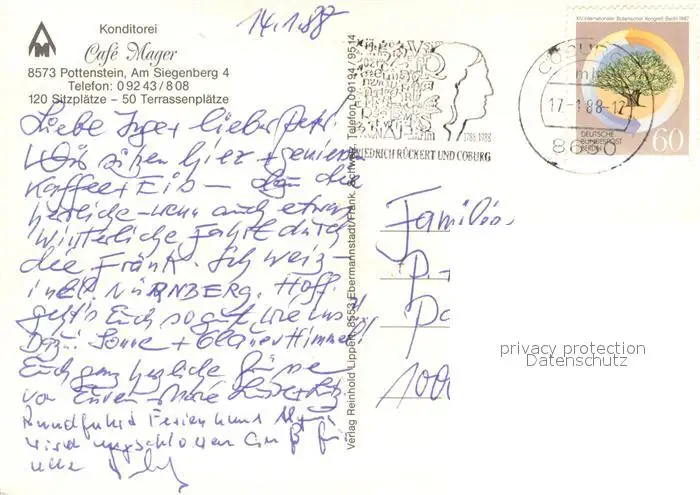 14.1.88
Konditorei
Café Mager
8573 Pottenstein, Am Siegenberg 4
Telefon: 0 92 43 / 8 08
120 Sitzplätze – 50 Terrassenplätze
Liebe Inge + lieber
Wir sitzen hier + genießen
Kaffee + Eis – dazu die
herrliche – wenn auch etwas
winterliche Fahrt durch
die Fränk. Schweiz –
inkl NÜRNBERG. Hoff.
geht's Euch so gut wie uns
Dazu Sonne + blauer Himmel
Euch ganz herzliche Grüße
von Euren
Rundfahrt Ferien
wird Gruß für
alle
Verlag Reinhold Lippert, 8553 Ebermannstadt/Fränk. Schweiz, Telefon 09194/9514
1788-1988
FRIEDRICH RÜCKERT UND COBURG
COBURG
17.-1.88-17
8630
XIV Internationaler Botanischer Kongreß Berlin 1987
DEUTSCHE
BUNDESPOST
BERLIN
60
Familie
P.
100
privacy protection
Datenschutz